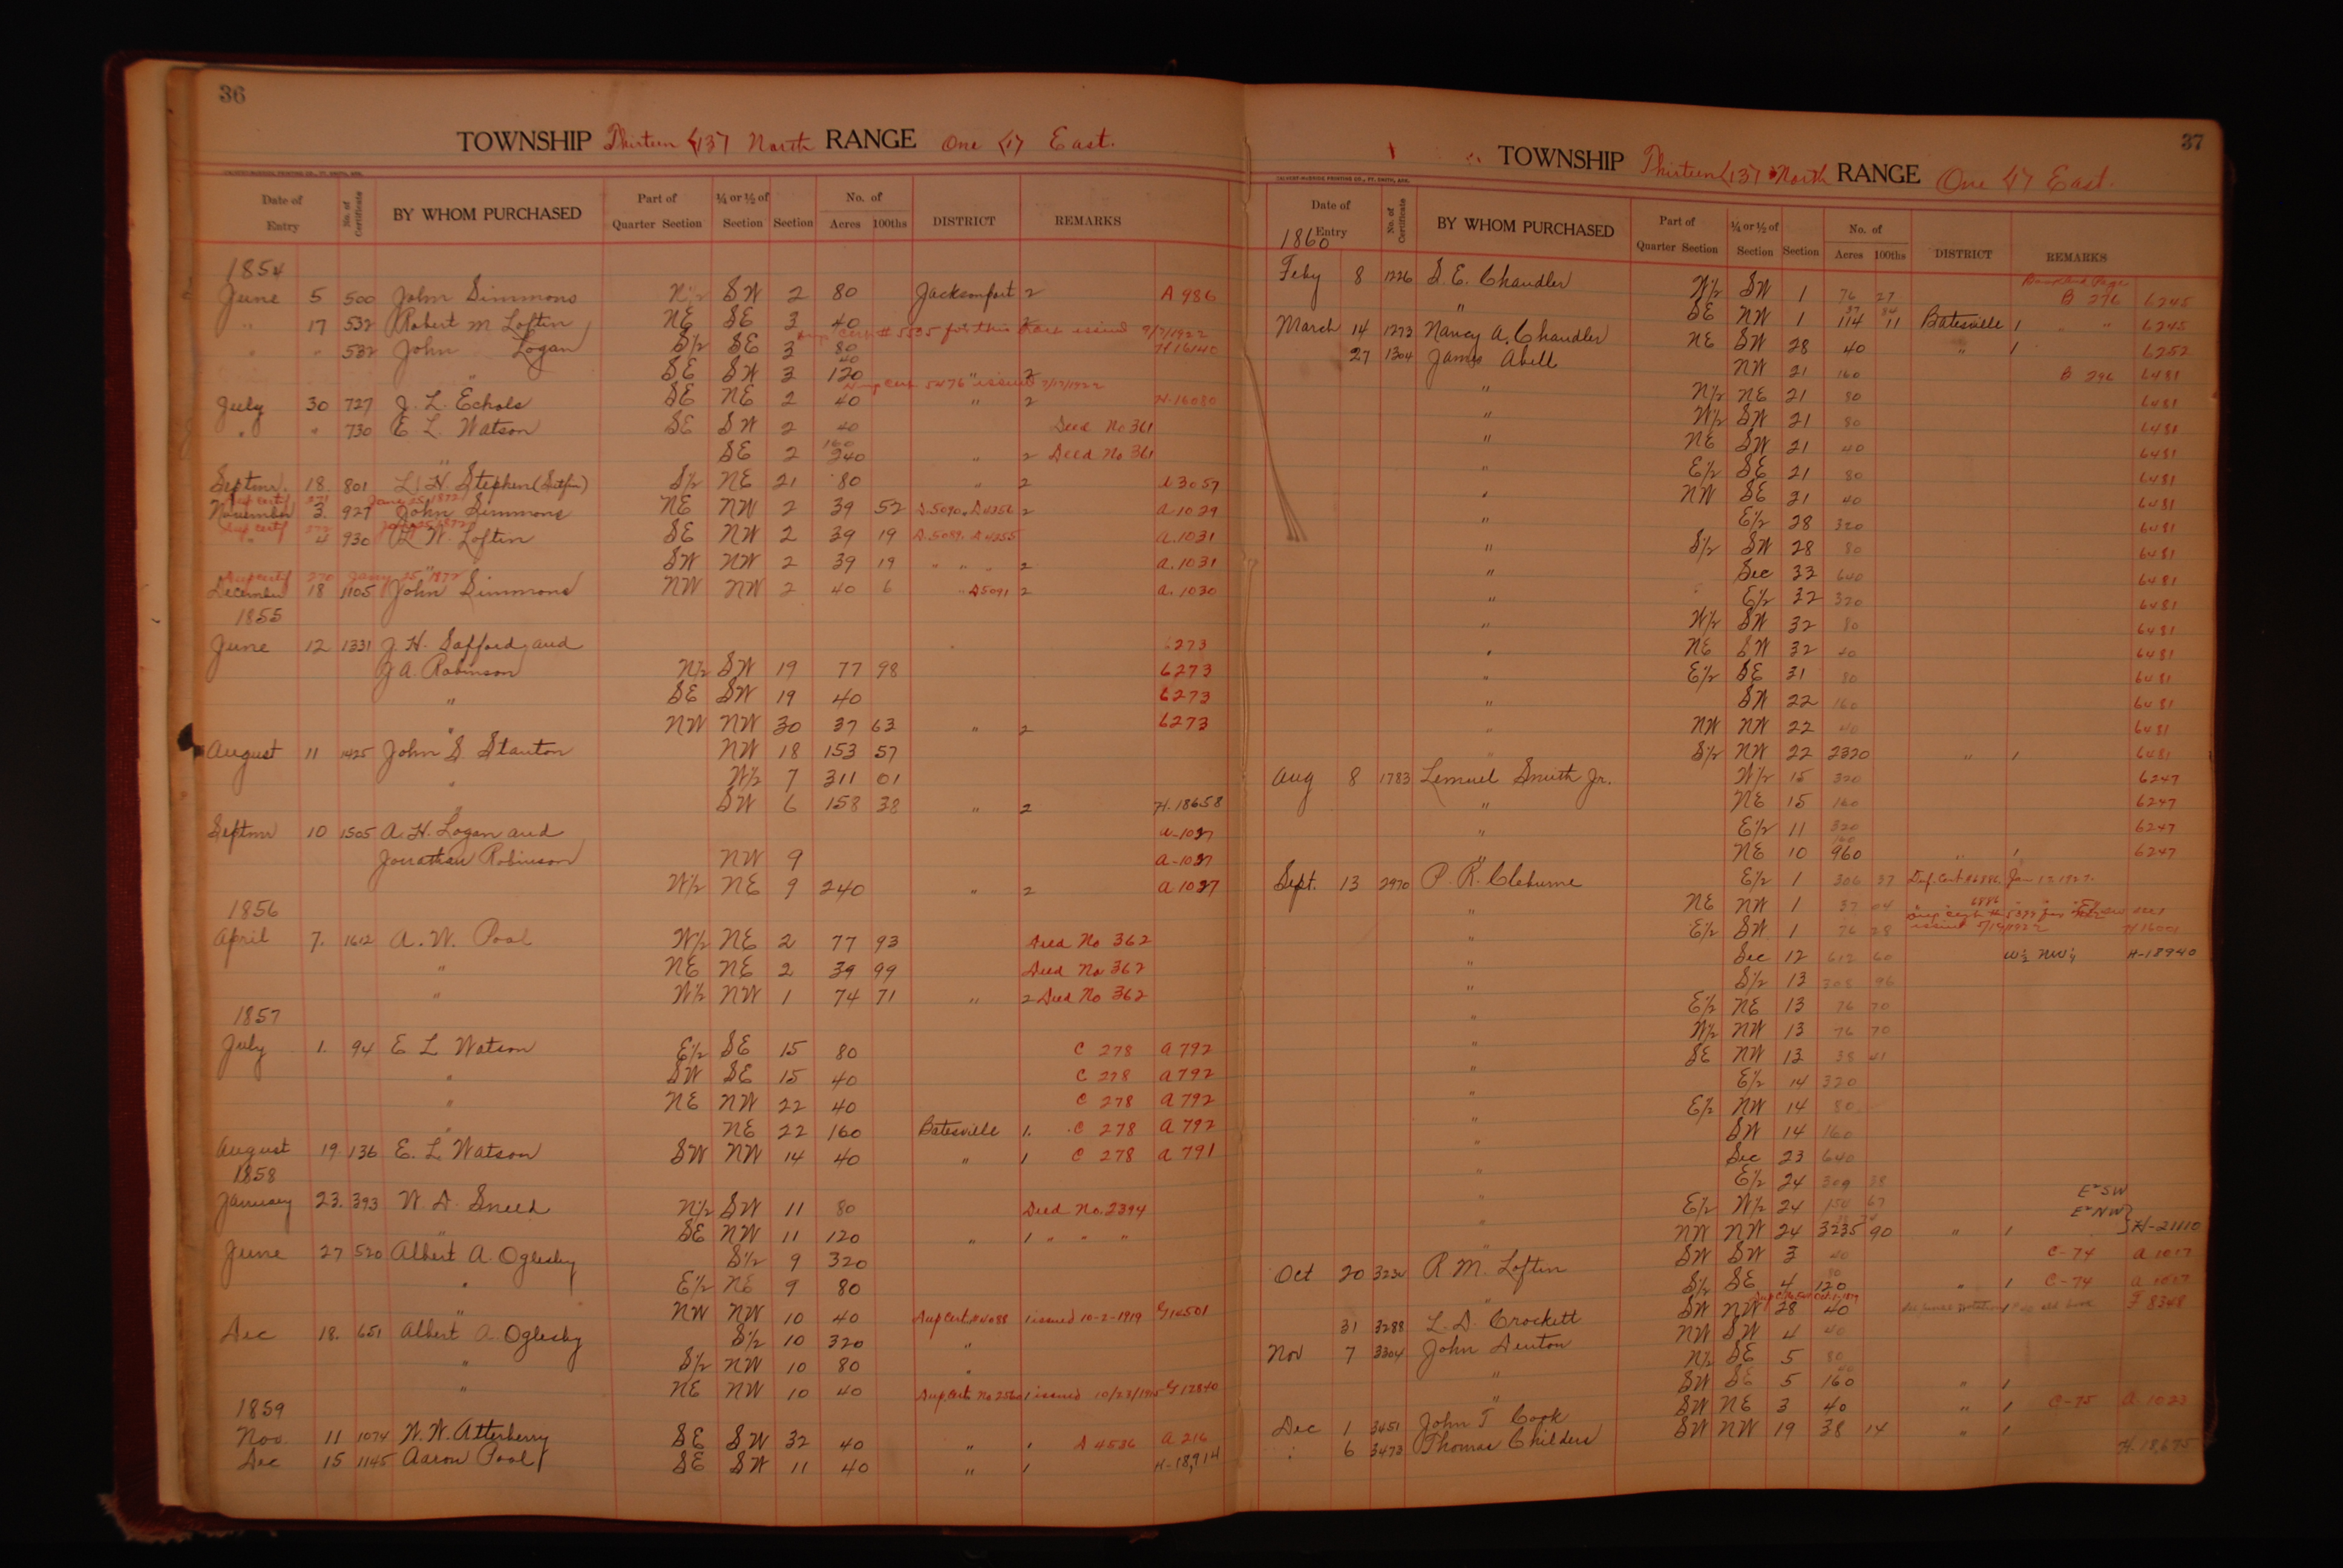 36
TOWNSHIP Thirteen (13) North RANGE One (1) East.
Date of Entry No. of Certificate BY WHOM PURCHASED Part of Quarter Section ¼ or ½ of Section Section No. of Acres 100ths DISTRICT REMARKS
1854
June 5 500 John Simmons N½ SW 2 80 Jacksonport 2 A 986
" 17 532 Robert M Loftin NE SE 3 40
" " 532 John Logan S½ SE 3 80 H 16140
" SE SW 3 40 120 " 2
July 30 727 J. L. Echols SE NE 2 40 " 2 H-16080
" " 730 E L. Watson SE SW 2 40 Deed No 361
" SE 2 160 240 " 2 Deed No 361
Septmr. 18 801 L. H. Stephen S½ NE 21 80 " 2
November 3. 927 John Simmons NE NW 2 39 52 2 a. 1029
" 4 930 L W. Loftin SE NW 2 39 19 a. 1031
" SW NW 2 39 19 " " " 2 a. 1031
December 18 1105 John Simmons NW NW 2 40 6 " D5091 2 a. 1030
1855
June 12 1331 J. H. Safford and 6273
J A. Robinson N½ SW 19 77 98 6273
" SE SW 19 40 6273
" NW NW 30 37 63 " 2 6273
August 11 1425 John S. Stanton NW 18 153 57
" W½ 7 311 01
" SW 6 158 38 " 2 H. 18658
Septmr 10 1505 A. H. Logan and a-1027
Jonathan Robinson NW 9 a-1027
W½ NE 9 240 " 2 a 1027
1856
April 7. 1612 A. W. Pool W½ NE 2 77 93 Deed No 362
" NE NE 2 39 99 Deed No 362
" W½ NW 1 74 71 " 2 Deed No 362
1857
July 1. 94 E L Watson E½ SE 15 80 C 278 a 792
" SW SE 15 40 C 278 a 792
" NE NW 22 40 C 278 a 792
" NE 22 160 Batesville 1. C 278 a 792
August 19 136 E. L. Watson SW NW 14 40 " 1 C 278 a 791
1858
January 23. 393 W. D. Sneed N½ SW 11 80 Deed No. 2394
" SE NW 11 120 " 1 " " "
June 27 520 Albert A. Oglesby S½ 9 320
" E½ NE 9 80
" NW NW 10 40 Sup Cert # 4088 issued 10-2-1919 G14501
Dec 18. 651 Albert A. Oglesby S½ 10 320 "
" S½ NW 10 80 "
" NE NW 10 40 1 issued 10/23/1915 G 12840
1859
Nov. 11 1074 W. W. Atterberry SE SW 32 40 " 1 D 4536 a 216
Dec 15 1145 Aaron Pool SE SW 11 40 " 1 H-18,914
37
TOWNSHIP Thirteen (13) North RANGE One (1) East.
Date of Entry No. of Certificate BY WHOM PURCHASED Part of Quarter Section ¼ or ½ of Section Section No. of Acres 100ths DISTRICT REMARKS
1860
Feby 8 1226 S. E. Chandler W½ SW 1 76 27 B 296 6245
" SE NW 1 37 84 114 11 Batesville 1 " " 6245
March 14 1273 Nancy A. Chandler NE SW 28 40 " 1 6252
27 1304 James Abell NW 21 160 B 296 6481
" N½ NE 21 80 6481
" W½ SW 21 80 6481
" NE SW 21 40 6481
" E½ SE 21 80 6481
" NW SE 21 40 6481
" E½ 28 320 6481
" S½ SW 28 80 6481
" Sec 33 640 6481
" E½ 32 320 6481
" W½ SW 32 80 6481
" NE SW 32 40 6481
" E½ SE 31 80 6481
" SW 22 160 6481
" NW NW 22 40 6481
" S½ NW 22 2320 " 1 6481
Aug 8 1783 Lemuel Smith Jr. W½ 15 320 6247
" NE 15 160 6247
" E½ 11 320 6247
" NE 10 160 960 " 1 6247
Sept. 13 2970 P. R. Cleburne E½ 1 306 37
" NE NW 1 37 04
" E½ SW 1 76 28 H16001
" Sec 12 612 60 W½ NW¼ H-18940
" S½ 13 308 96
" E½ NE 13 76 70
" W½ NW 13 76 70
" SE NW 13 38 41
" E½ 14 320
" E½ NW 14 80
" SW 14 160
" Sec 23 640
" E½ 24 309 38
" E½ W½ 24 154 67 E½ SW
" NW NW 24 3235 90 " 1 E½ NW } H-21110
Oct 20 R M. Loftin SW SW 3 40 C-74 a 1017
" S½ SE 4 80 120 " 1 C-74 a 1017
31 3288 L. D. Crockett SW NW 28 40 F 8348
Nov 7 3304 John Denton NW SW 4 40
" N½ SE 5 80
" SW SE 5 40 160 " 1
Dec 1 3451 John T Cook SW NE 3 40 " 1 C-75 a 1023
" 6 3473 Thomas Childers SW NW 19 38 14 " 1 H 18,675